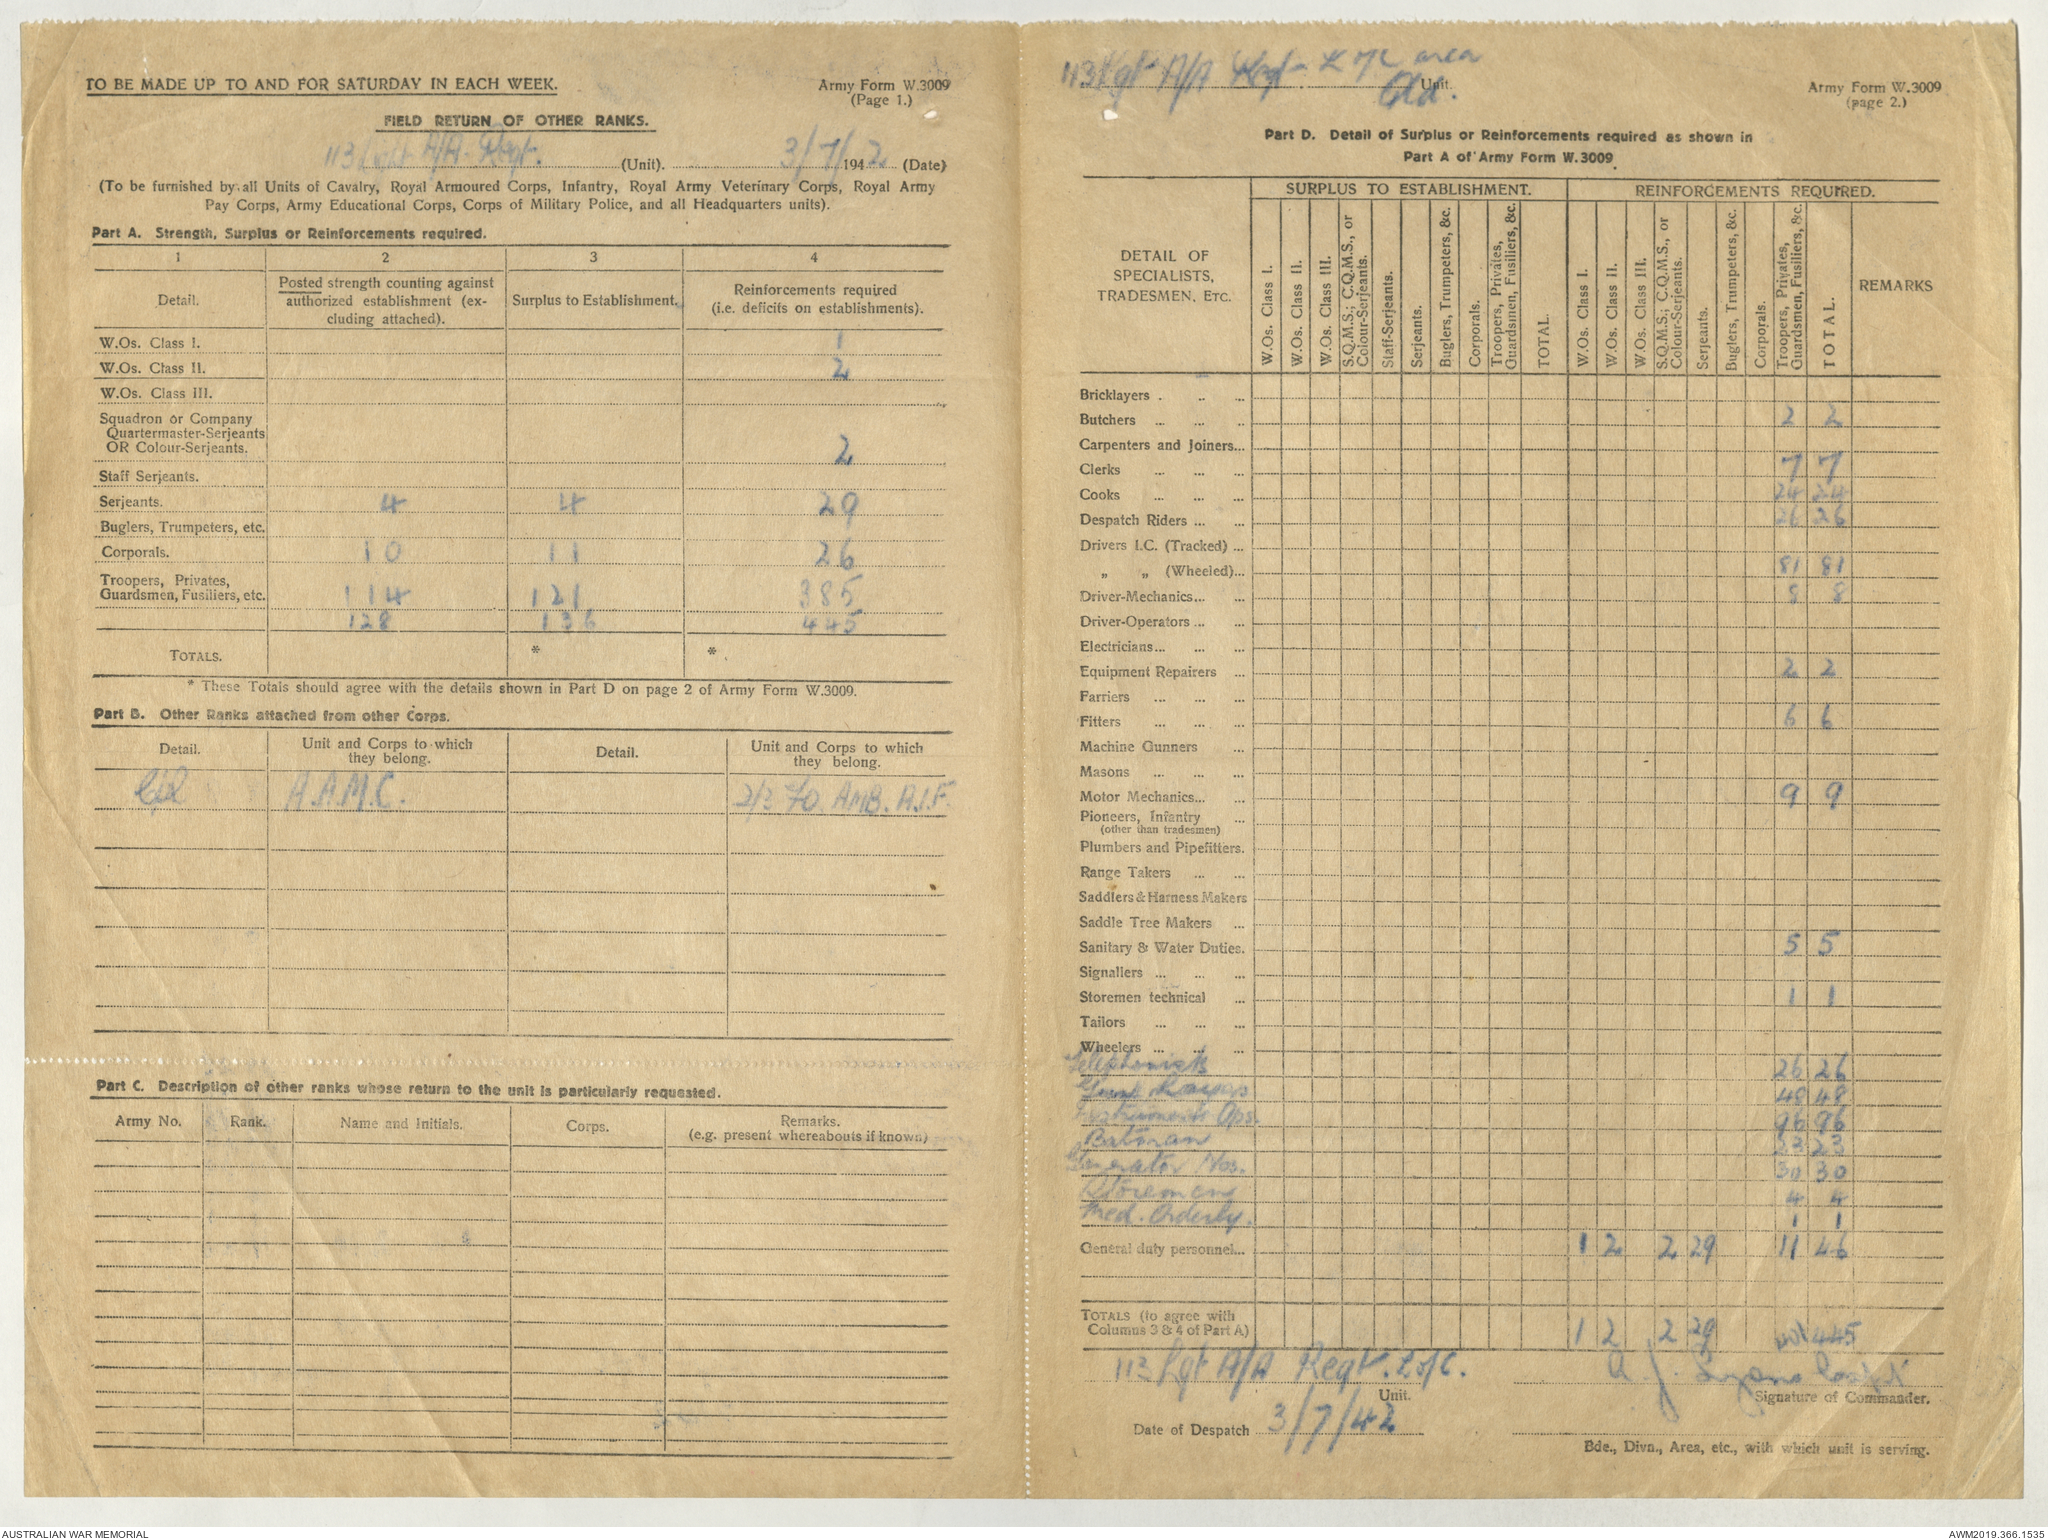 TO BE MADE UP TO AND FOR SATURDAY IN EACH WEEK.
Army Form W.3009
(Page 1.)
FIELD RETURN OF OTHER RANKS.
113 Lght A/A. Regt. (Unit). 3/7/ 1942 (Date)
(To be furnished by all Units of Cavalry, Royal Armoured Corps, Infantry, Royal Army Veterinary Corps, Royal Army
Pay Corps, Army Educational Corps, Corps of Military Police, and all Headquarters units).
Part A. Strength, Surplus or Reinforcements required.
1 2 3 4
Detail. Posted strength counting against authorized establishment (excluding attached). Surplus to Establishment. Reinforcements required (i.e. deficits on establishments).
W.Os. Class I. 1
W.Os. Class II. 2
W.Os. Class III.
Squadron or Company
Quartermaster-Serjeants
OR Colour-Serjeants. 2
Staff Serjeants.
Serjeants. 4 4 29
Buglers, Trumpeters, etc.
Corporals. 10 11 26
Troopers, Privates,
Guardsmen, Fusiliers, etc. 114 121 385
128 136 445
TOTALS. * *
* These Totals should agree with the details shown in Part D on page 2 of Army Form W.3009.
Part B. Other Ranks attached from other Corps.
Detail. Unit and Corps to which they belong. Detail. Unit and Corps to which they belong.
Cpl A.A.M.C. 2/3 FD. AMB. A.I.F.
Part C. Description of other ranks whose return to the unit is particularly requested.
Army No. Rank. Name and Initials. Corps. Remarks.
(e.g. present whereabouts if known)
113 Lgt A/A Regt L of C area
Qld. Unit.
Army Form W.3009
(page 2.)
Part D. Detail of Surplus or Reinforcements required as shown in
Part A of Army Form W.3009
DETAIL OF SPECIALISTS, TRADESMEN, ETC.
SURPLUS TO ESTABLISHMENT. REINFORCEMENTS REQUIRED.
W.Os. Class I. W.Os. Class II. W.Os. Class III. S.Q.M.S.; C.Q.M.S., or Colour-Serjeants. Staff-Serjeants. Serjeants. Buglers, Trumpeters, &c. Corporals. Troopers, Privates, Guardsmen, Fusiliers, &c. TOTAL.
W.Os. Class I. W.Os. Class II. W.Os. Class III. S.Q.M.S.; C.Q.M.S., or Colour-Serjeants. Serjeants. Buglers, Trumpeters, &c. Corporals. Troopers, Privates, Guardsmen, Fusiliers, &c. TOTAL. REMARKS
Bricklayers . .. ...
Butchers ... ... ... 2 2
Carpenters and Joiners...
Clerks ... ... ... 7 7
Cooks ... ... ... 24 24
Despatch Riders ... ... 26 26
Drivers I.C. (Tracked) ...
„ „ (Wheeled)... 81 81
Driver-Mechanics... ... 8 8
Driver-Operators ... ...
Electricians... ... ...
Equipment Repairers ... 2 2
Farriers ... ... ...
Fitters ... ... ... 6 6
Machine Gunners ...
Masons ... ... ...
Motor Mechanics... ... 9 9
Pioneers, Infantry ...
(other than tradesmen)
Plumbers and Pipefitters.
Range Takers ... ...
Saddlers & Harness Makers
Saddle Tree Makers ...
Sanitary & Water Duties. 5 5
Signallers ... ... ...
Storemen technical ... 1 1
Tailors ... ... ...
Wheelers ... ... ...
Telephonists 26 26
48 48
Instruments Ops. 96 96
Batman 23 23
Generator Nos. 30 30
Storemen 4 4
Med. Orderly. 1 1
General duty personnel... 1 2 2 29 11 46
TOTALS (to agree with
Columns 3 & 4 of Part A) 1 2 2 29 445
113 Lgt A/A Regt. L of C.
Unit.
Signature of Commander.
Date of Despatch 3/7/42
Bde., Divn., Area, etc., with which unit is serving.
AUSTRALIAN WAR MEMORIAL
AWM2019.366.1535